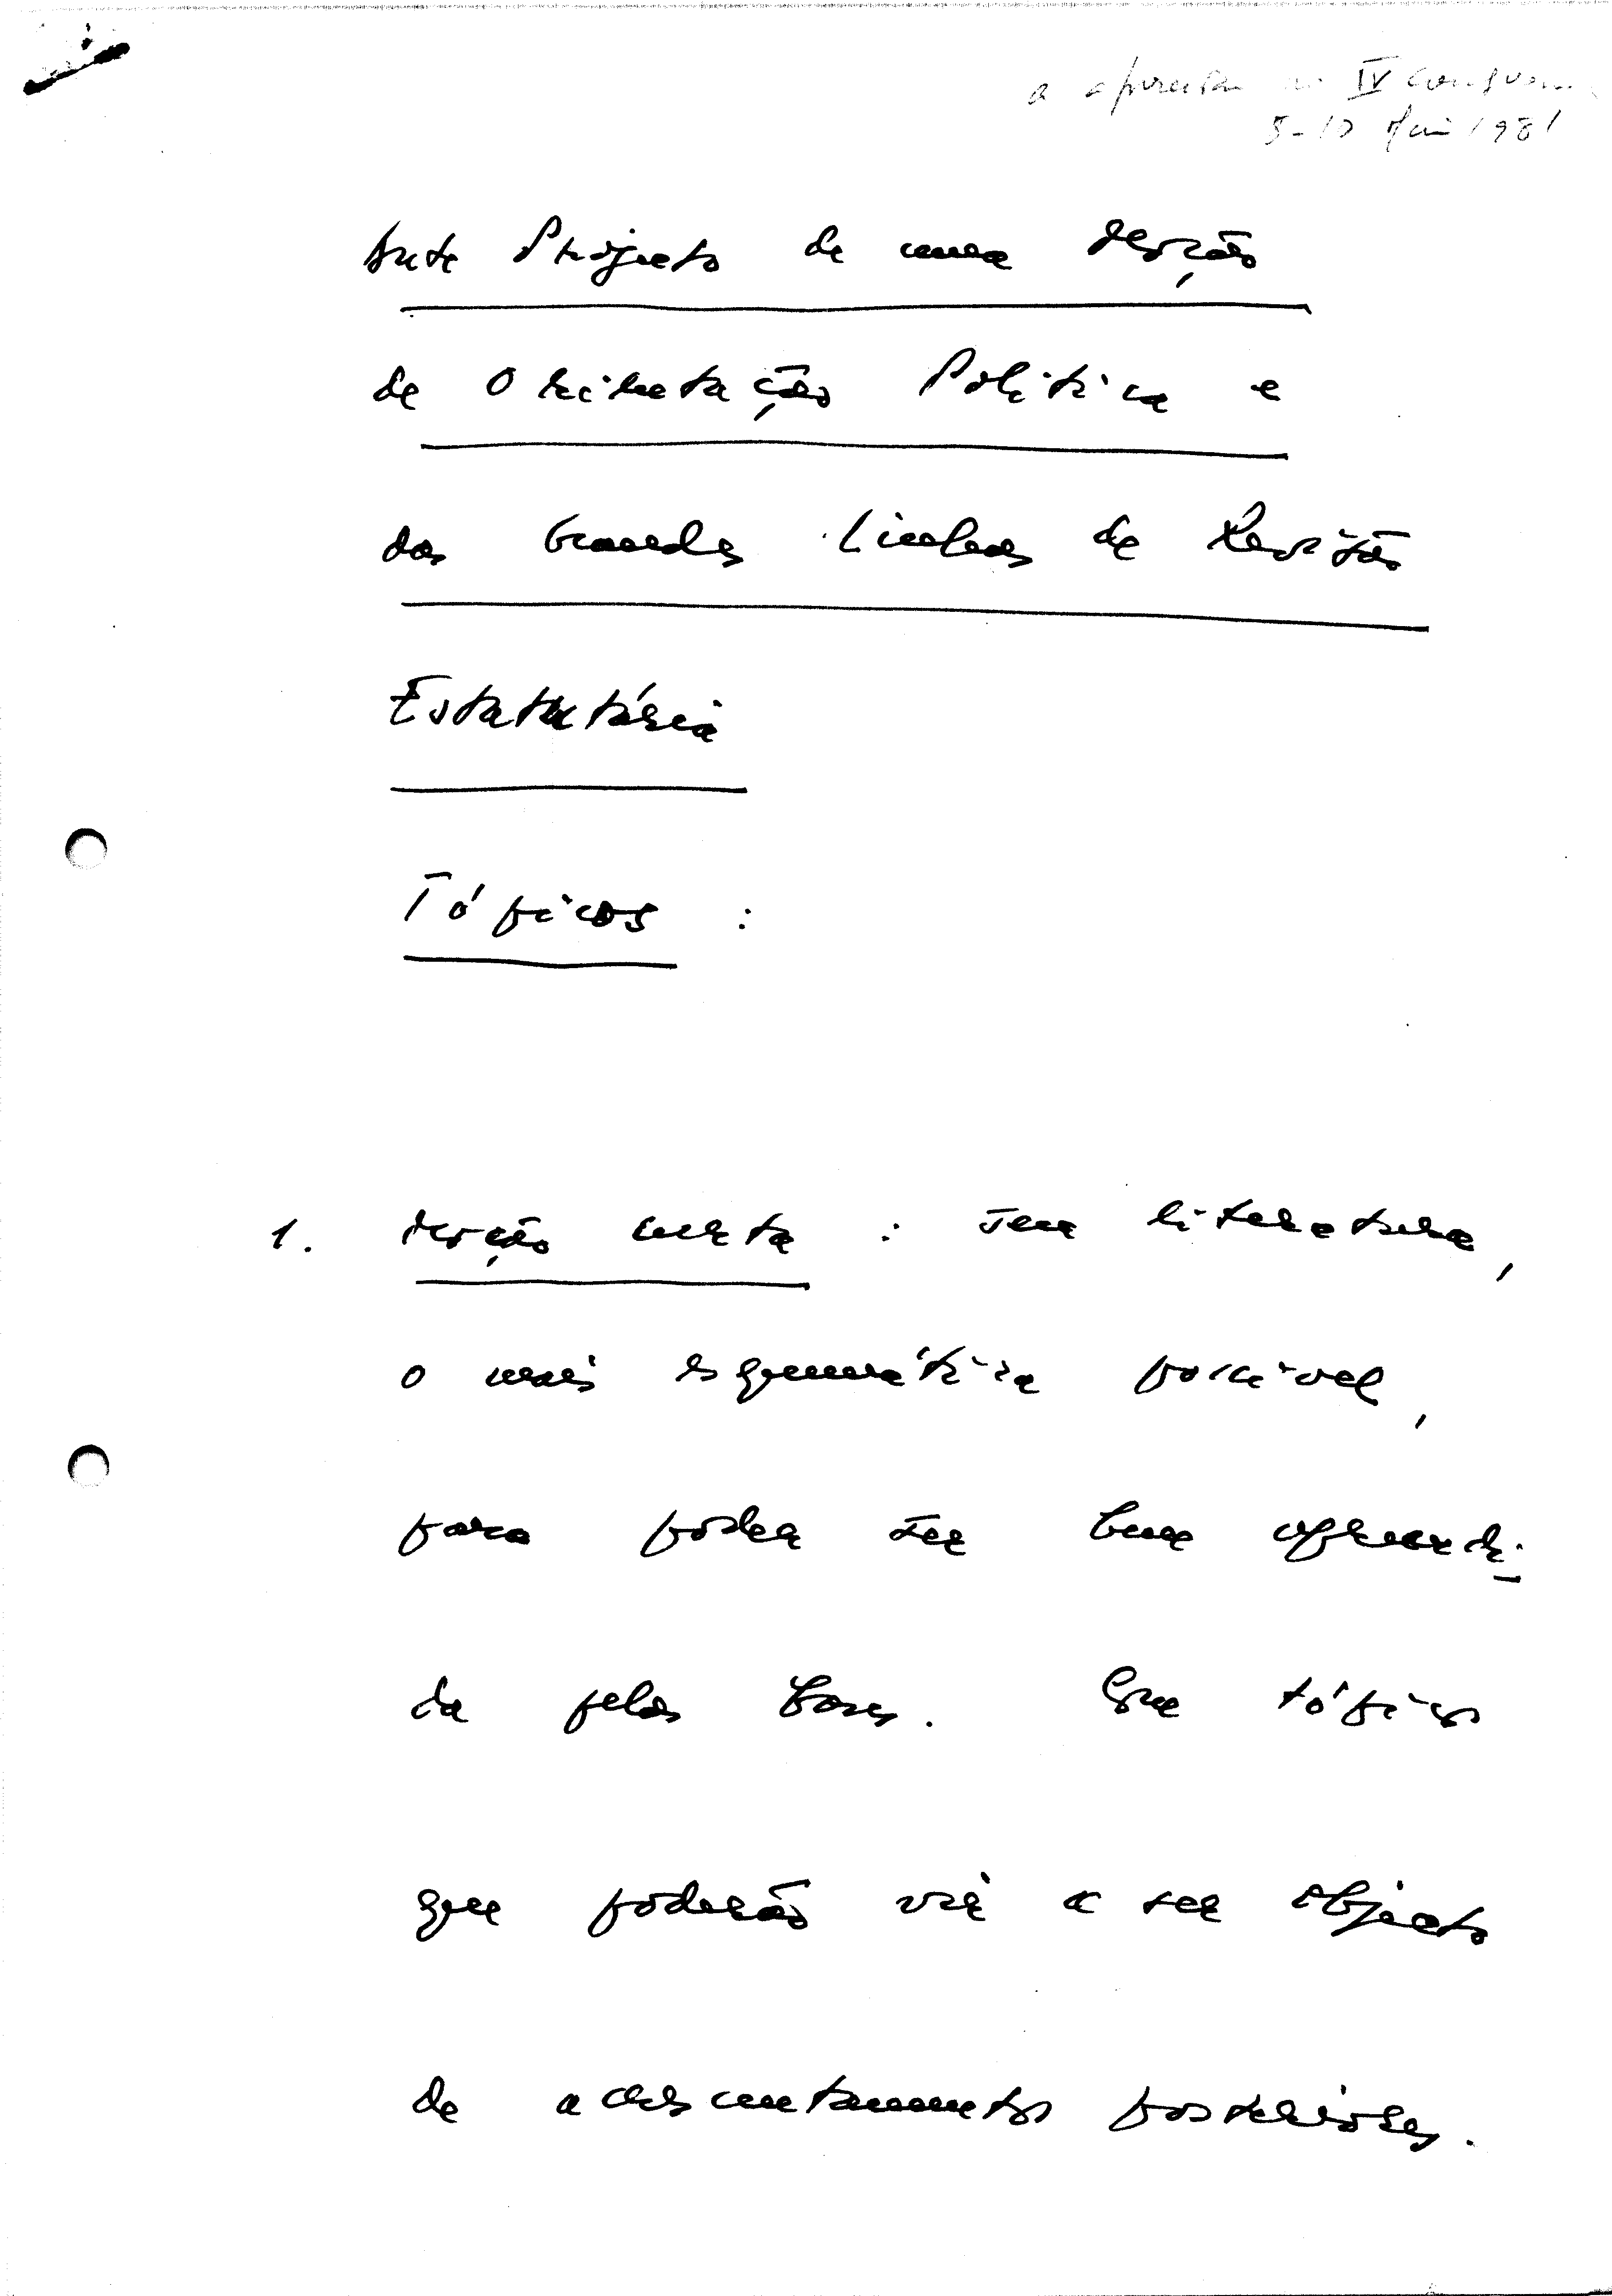 a apresentar no IV Congresso
8-10 Maio 1981
Ante Projecto de uma Moção
de Orientação Política e
das Grandes Linhas de Revisão
Estatutária
Tópicos :
1. Moção curta : sem literatura,
o mais esquemática possível,
para poder ser bem apreendi-
da pelas bases. Que tópicos
que poderão vir a ser objecto
de acrescentamentos posteriores.